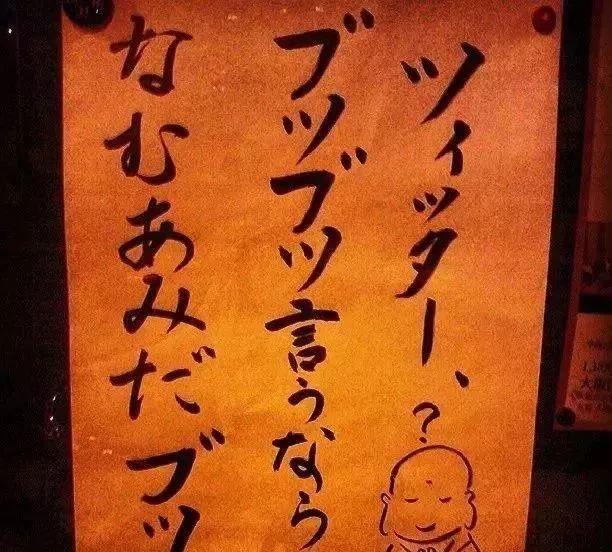 ツィッター、?
ブツブツ言うなら
なむあみだブツ